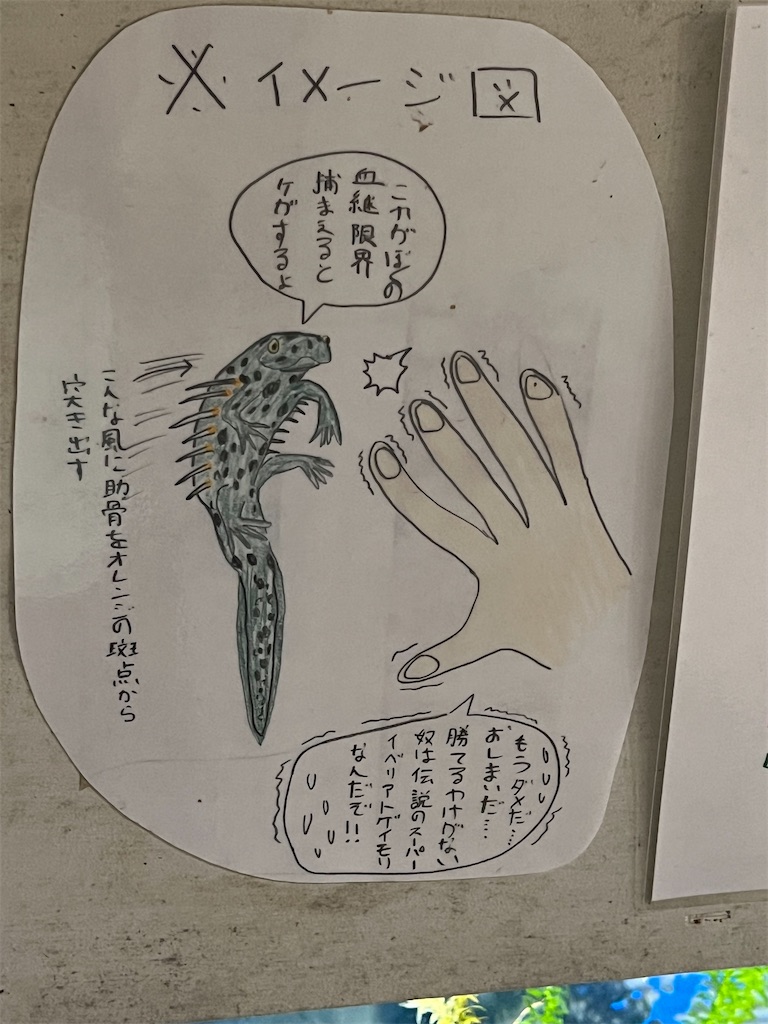 ※イメージ図
これがぼくの
血継限界
捕まえると
ケガするよ
こんな風に肋骨をオレンジの斑点から
突き出す
もうダメだ……
おしまいだ……
勝てるわけがない
奴は伝説のスーパー
イベリアトゲイモリ
なんだぞ!!